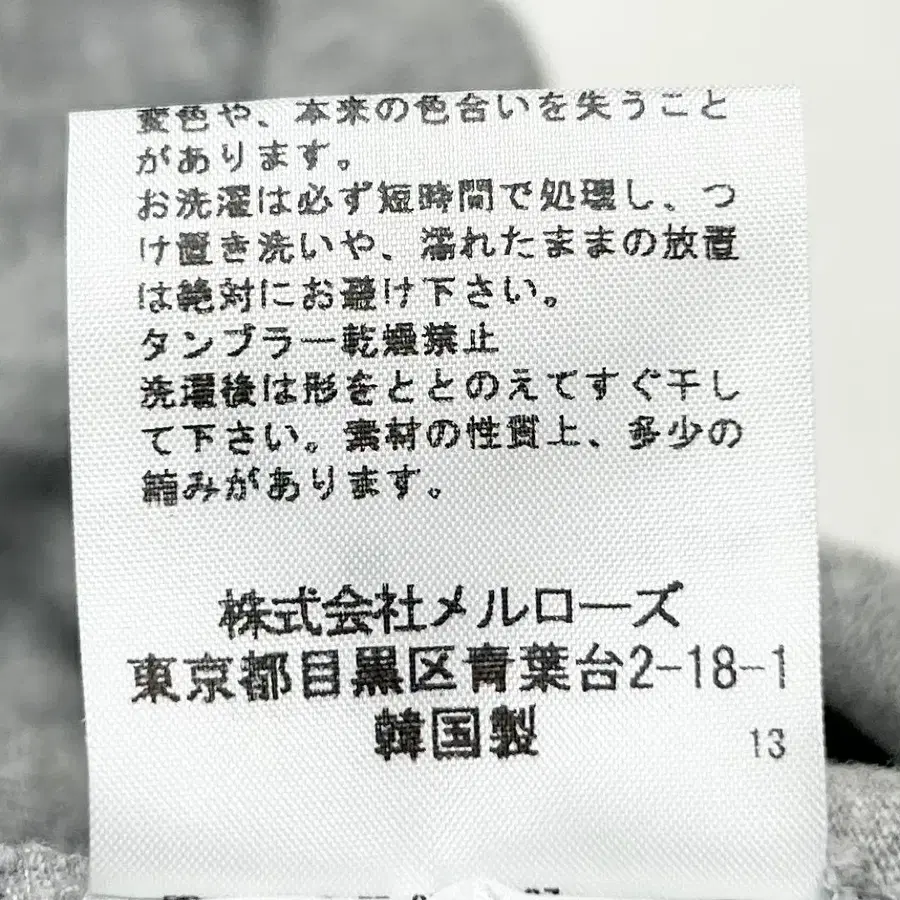 変色や、本来の色合いを失うこと
があります。
お洗濯は必ず短時間で処理し、つ
け置き洗いや、濡れたままの放置
は絶対にお避け下さい。
タンブラー乾燥禁止
洗濯後は形をととのえてすぐ干し
て下さい。素材の性質上、多少の
縮みがあります。
株式会社メルローズ
東京都目黒区青葉台2-18-1
韓国製
13